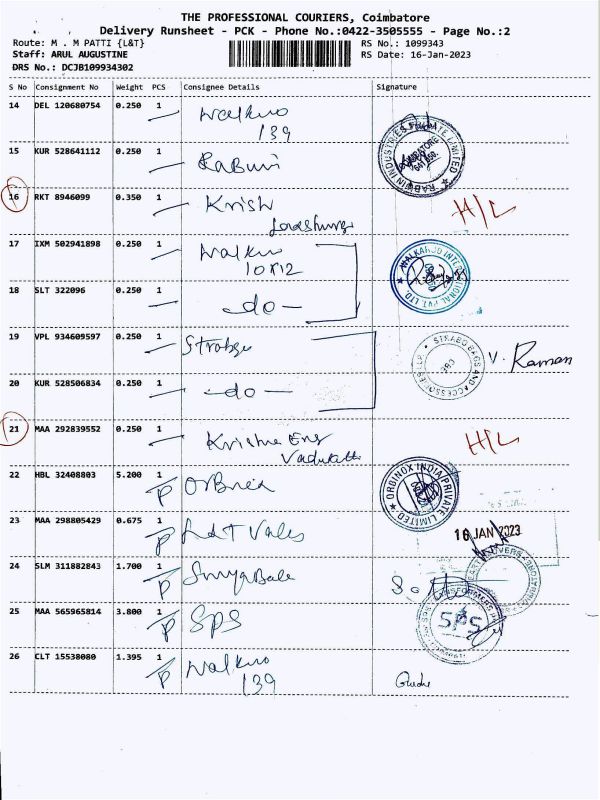 THE PROFESSIONAL COURIERS, Coimbatore
Delivery Runsheet - PCK - Phone No.:0422-3505555 - Page No.:2
Route: M . M PATTI {L&T} RS No.: 1099343
Staff: ARUL AUGUSTINE RS Date: 16-Jan-2023
DRS No.: DCJB109934302
S No Consignment No Weight PCS Consignee Details Signature
14 DEL 120680754 0.250 1
139
15 KUR 528641112 0.250 1
RABWIN INDUSTRIES PRIVATE LIMITED
16 RKT 8946099 0.350 1 Krish H/L
17 IXM 502941898 0.250 1
10x12
WALKAROO INTERNATIONAL PVT. LTD.
18 SLT 322096 0.250 1 -do-
19 VPL 934609597 0.250 1
STRABO BAGS AND ACCESSORIES LLP V. Raman
20 KUR 528506834 0.250 1 -do-
21 MAA 292839552 0.250 1 Krishna Eng H/L
22 HBL 32408803 5.200 1 P
ORBINOX INDIA PRIVATE LIMITED
23 MAA 298805429 0.675 1 P L&T Valves
16 JAN 2023
24 SLM 311882843 1.700 1 P
25 MAA 565965814 3.800 1 P SPS
SPS
26 CLT 15538080 1.395 1 P
139